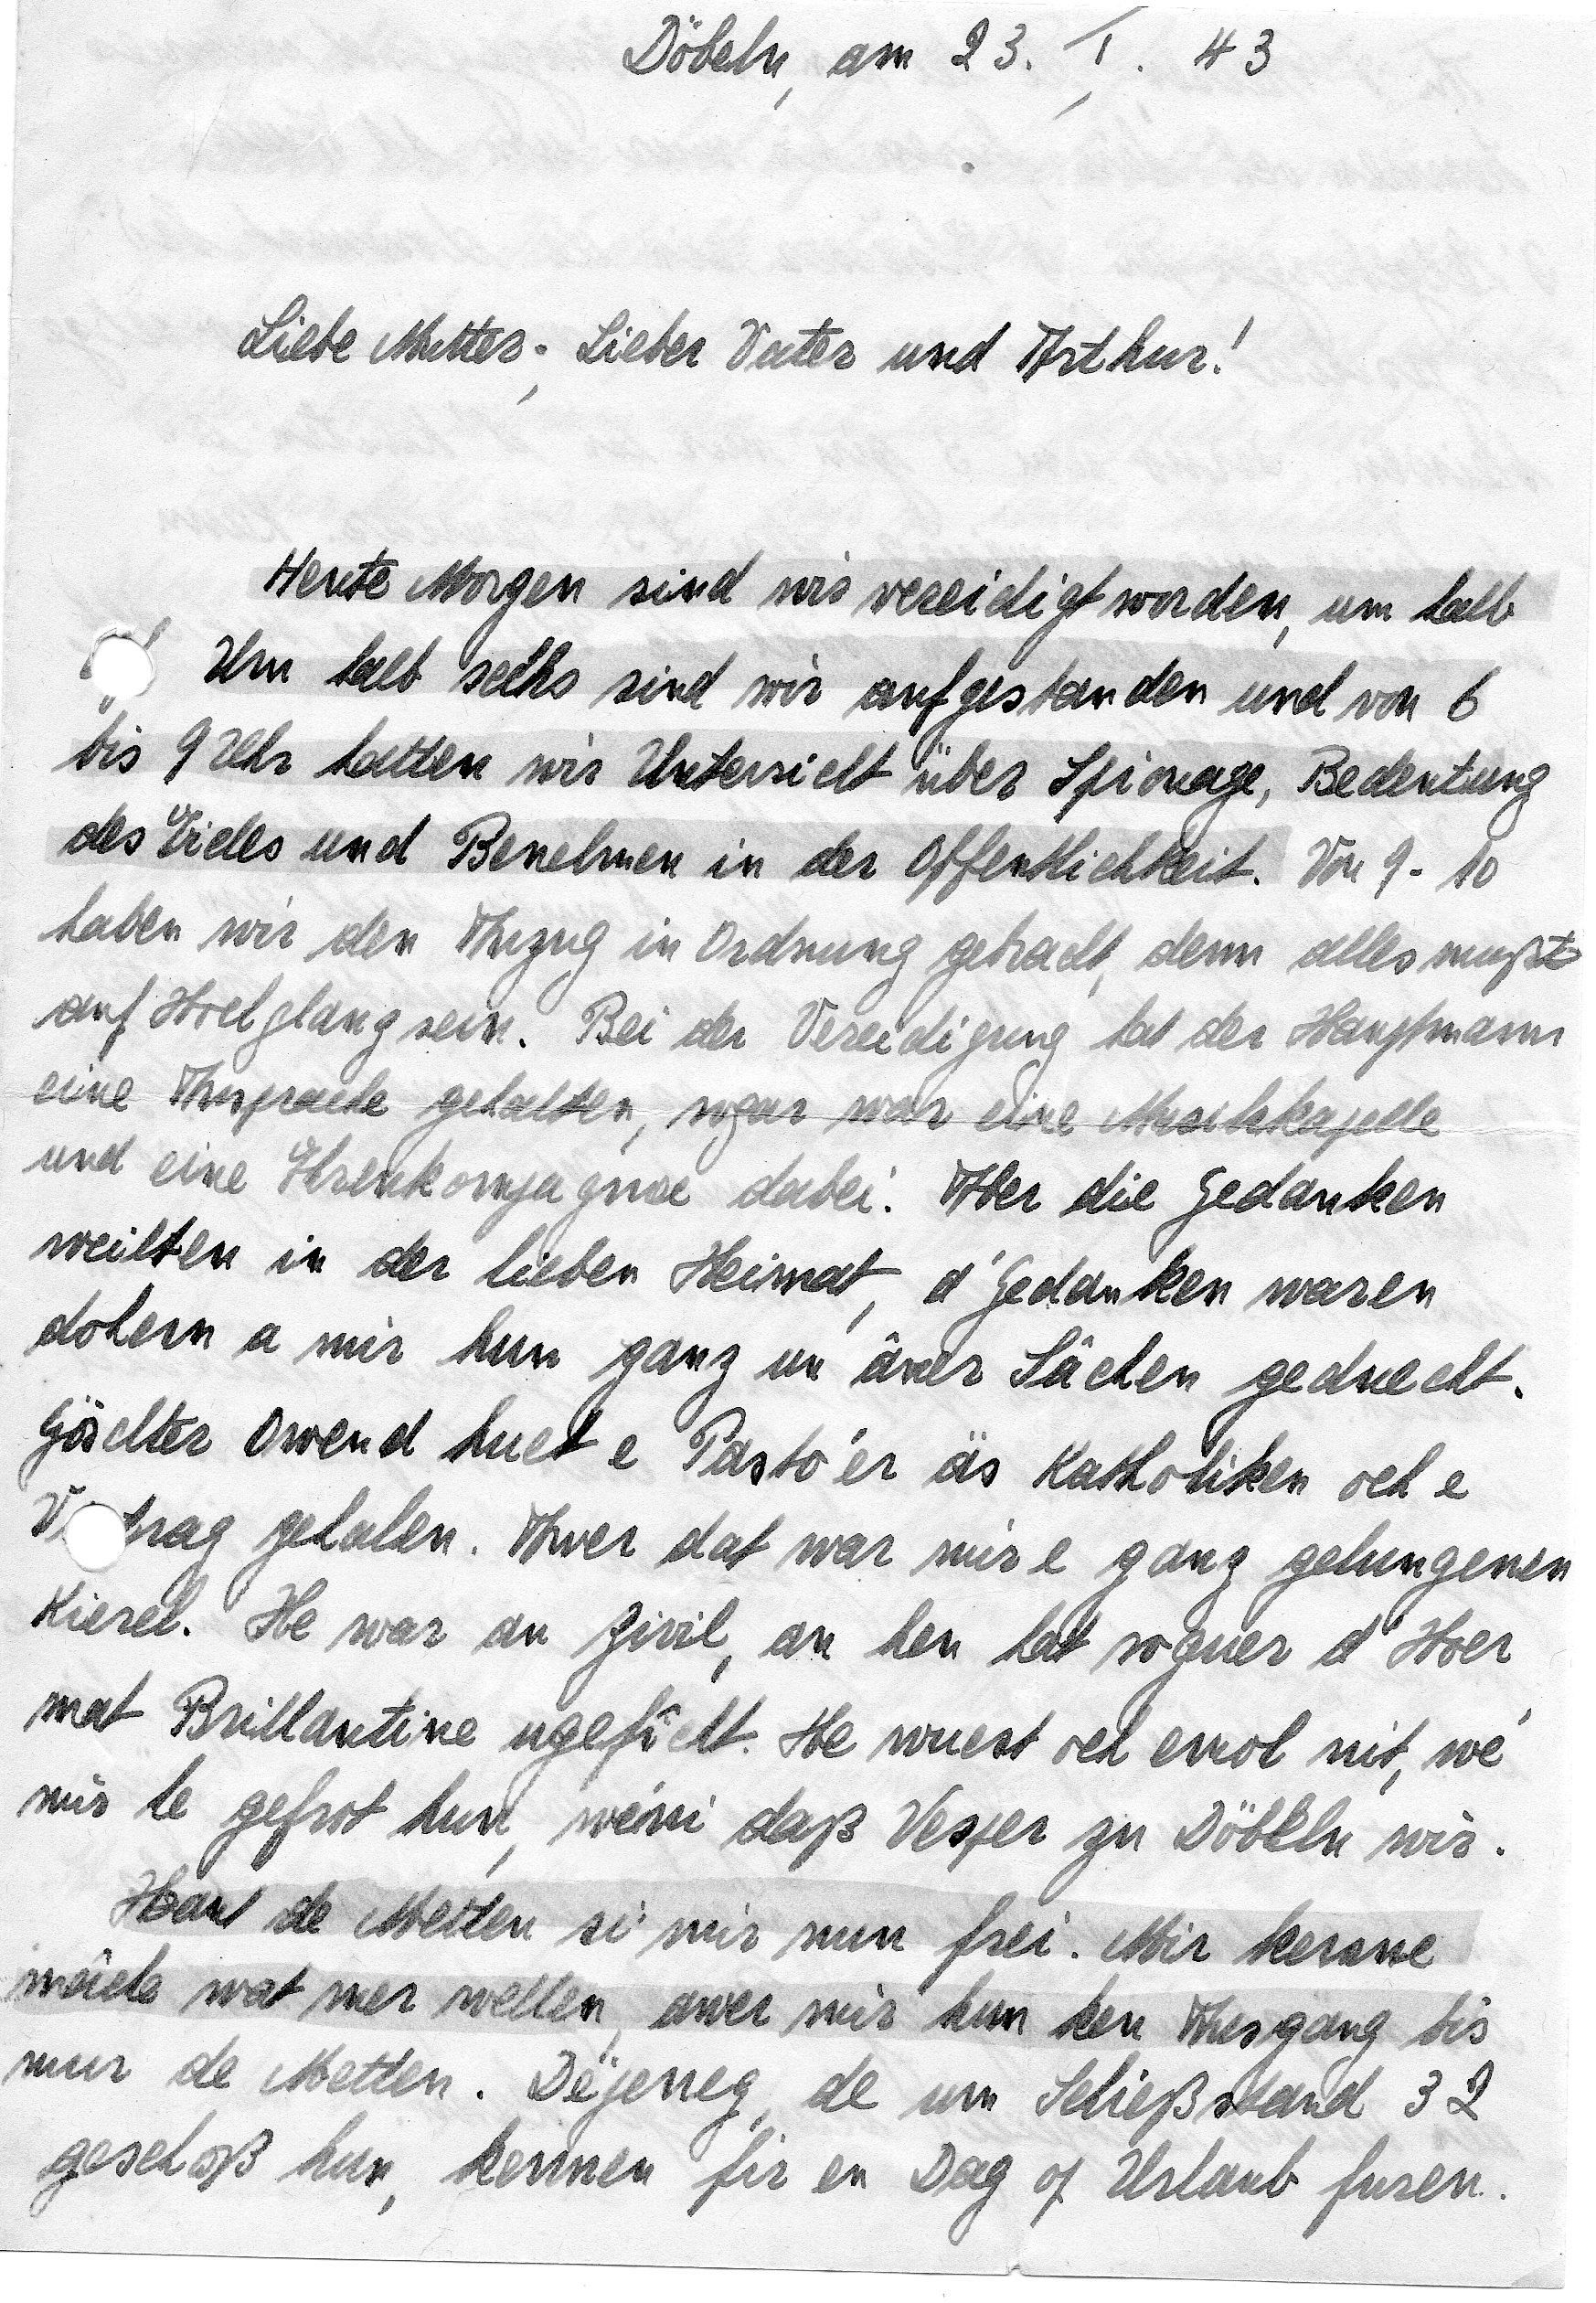 Döbeln, am 23. I. 43
Liebe Mutter, Lieber Vater und Arthur!
Heute Morgen sind wir vereidigt worden, um halb
Um halb sechs sind wir aufgestanden und von 6
bis 9 Uhr hatten wir Unterricht über Spionage, Bedeutung
des Eides und Benehmen in der Öffentlichkeit. Von 9-10
haben wir den Anzug in Ordnung gebracht, denn alles mußt
auf Hochglanz sein. Bei der Vereidigung hat der Hauptmann
eine Ansprache gehalten, sogar war eine Musikkapelle
und eine Ehrenkompagnie dabei. Aber die Gedanken
weilten in der lieben Heimat, d'Gedanken waren
dohem a mir hun ganz un äner Sächen geduecht.
Göschter Owend huet e Pasto'er äs Katholiken och e
V trag gehalen. Awer dat war mir e ganz gelungenen
Kierel. He war an Zivil, an hen hat soguer d'Hoer
mat Brillantine ugefîcht. He wuest och emol nit, wé
mir he gefrot hun, wéini daß Vesper zu Döbeln wir.
Haut de Metten si mir nun frei. Mir kenne
mâche wat mer wellen, awer mir hun ken Ausgang bis
mur de Metten. Dëjeneg, de um Schießstand 32
geschoß hun, kennen fir en Dag of Urlaub fueren.